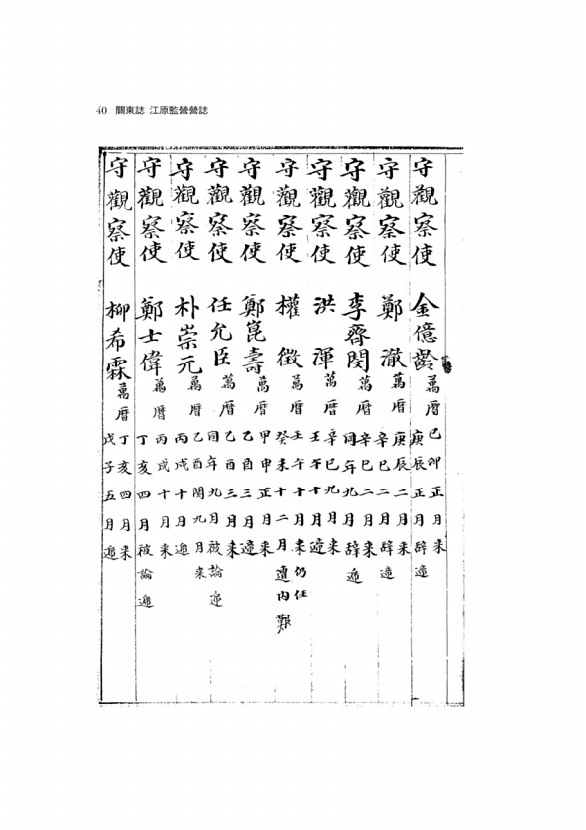 40 關東誌 江原監營營誌
守觀察使 金億齡 萬曆己卯正月来 庚辰正月辭遞
守觀察使 鄭澈 萬曆庚辰二月来 辛巳二月辭遞
守觀察使 李齊閔 萬曆辛巳二月来 同年九月辭遞
守觀察使 洪渾 萬曆辛巳九月来 壬午十月遞
守觀察使 權徵 萬曆壬午十月来仍任 癸未十二月遭内艱
守觀察使 鄭崑壽 萬曆甲申正月来 乙酉三月遞
守觀察使 任允臣 萬曆乙酉三月来 同年九月被論遞
守觀察使 朴崇元 萬曆乙酉閏九月来 丙戌十月遞
守觀察使 鄭士偉 萬曆丙戌十月来 丁亥四月被論遞
守觀察使 柳希霖 萬曆丁亥四月来 戊子五月遞